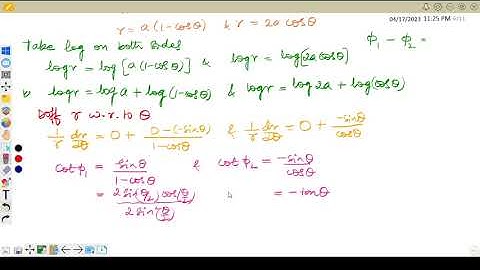 r = a(1-cosθ) & r = 2a cosθ
04/17/2021 11:25 PM
Take log on both sides
φ₁ - φ₂ =
logr = log[a(1-cosθ)] & logr = log[2a cosθ]
logr = loga + log(1-cosθ) & logr = log 2a + log(cosθ)
Diff r w.r. to θ
1/r dr/dθ = 0 + 0-(-sinθ)/1-cosθ & 1/r dr/dθ = 0 + -sinθ/cosθ
cotφ₁ = sinθ/1-cosθ & cotφ₂ = -sinθ/cosθ
= 2 sin(θ/2) cos(θ/2)/2 sin²(θ/2) = -tanθ